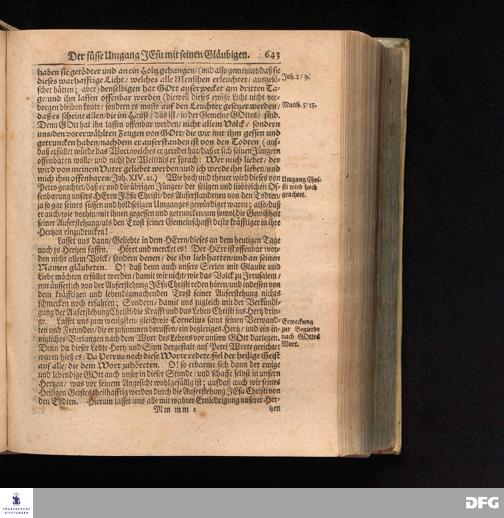 Der süsse Umgang JEsu mit seinen Gläubigen. 643
haben sie getödtet und an ein Holtz gehangen/ (und also gemeynet/ daß sie
dieses warhafftige Licht/ welches alle Menschen erleuchtet/ ausgelö-
schet hätten; aber) denselbigen hat GOtt auferwecket am dritten Ta-
ge/ und ihn lassen offenbar werden (dieweil dieses ewige Licht nicht ver-
borgen bleiben konte/ sondern es muste auf den Leuchter gesetzet werden/
daß es scheine allen/ die im Hause/ das ist/ in der Gemeine GOttes/ sind.
Denn GOtt hat ihn lassen offenbar werden/ nicht allem Volck/ sondern
uns/ den vorerwählten Zeugen von GOtt/ die wir mit ihm gessen und
getruncken haben/ nachdem er auferstanden ist von den Todten (auf-
daß erfüllt würde das Wort/ welches er geredet hat/ daß er sich seinen Jüngern
offenbaren wolle/ und nicht der Welt/ als er sprach: Wer mich liebet/ der
wird von meinem Vater geliebet werden/ und ich werde ihn lieben/ und
mich ihm offenbaren/ Joh. XIV. 21.) Wie hoch und theuer wird dieses von
Petro geachtet/ daß er und die übrigen Jünger/ der seligen und liebreichen Of-
fenbarung unsers HErrn JEsu Christi/ des Auferstandenen von den Todten/
ja so gar seines süssen und holdseligen Umganges gewürdiget waren; also/ daß
er auch/ wie vorhin/ mit ihnen gegessen und getruncken/ um sowol die Gewißheit
seiner Auferstehung/ als den Trost seiner Gemeinschafft desto kräfftiger in ihre
Hertzen einzudrucken!
Lasset uns dann/ Geliebte in dem HErrn/ dieses an dem heutigen Tage
auch zu Hertzen fassen. Höret und mercket es! Der HErr ist offenbar wor-
den nicht allem Volck/ sondern denen/ die ihn lieb hatten/ und an seinen
Namen gläubeten. O! daß denn auch unsere Seelen mit Glaube und
Liebe möchten erfüllet werden/ damit wir nicht/ wie das Volck zu Jerusalem/
nur äusserlich von der Auferstehung JEsu Christi reden hören/ und indessen von
dem kräfftigen und lebendigmachenden Trost seiner Auferstehung nichts
schmecken noch erfahren; Sondern/ damit uns zugleich mit der Verkündi-
gung der Auferstehung Christi/ die Krafft und das Leben Christi ins Hertz drin-
ge. Lasset uns zum wenigsten/ gleichwie Cornelius samt seinen Verwand-
ten und Freunden/ die er zusammen beruffen/ ein begieriges Hertz/ und ein in-
nigliches Verlangen nach dem Wort des Lebens vor unsern GOtt darlegen.
Denn da dieser letzte Hertz und Sinn dergestalt auf Petri Worte gerichtet
waren/ hieß es: Da Petrus noch diese Worte redete/ fiel der heilige Geist
auf alle/ die dem Wort zuhöreten. O! so erbarme sich dann der ewige
und lebendige GOtt auch unser in dieser Stunde/ und schaffe selbst in unsern
Hertzen/ was vor seinem Angesicht wohlgefällig ist; aufdaß auch wir seines
Heiligen Geistes theilhafftig werden durch die Auferstehung JEsu Christi von
den Todten. Hierum lasset uns alle mit wahrer Erniedrigung unserer Her-
Mm mm 2 tzen
Joh. 1/ 9.
Matth. 5/ 15.
Umgang Chri-
sti wird hoch
geachtet.
Erweckung
zur Begierde
nach GOttes
Wort.
FRANCKESCHE
STIFTUNGEN
DFG